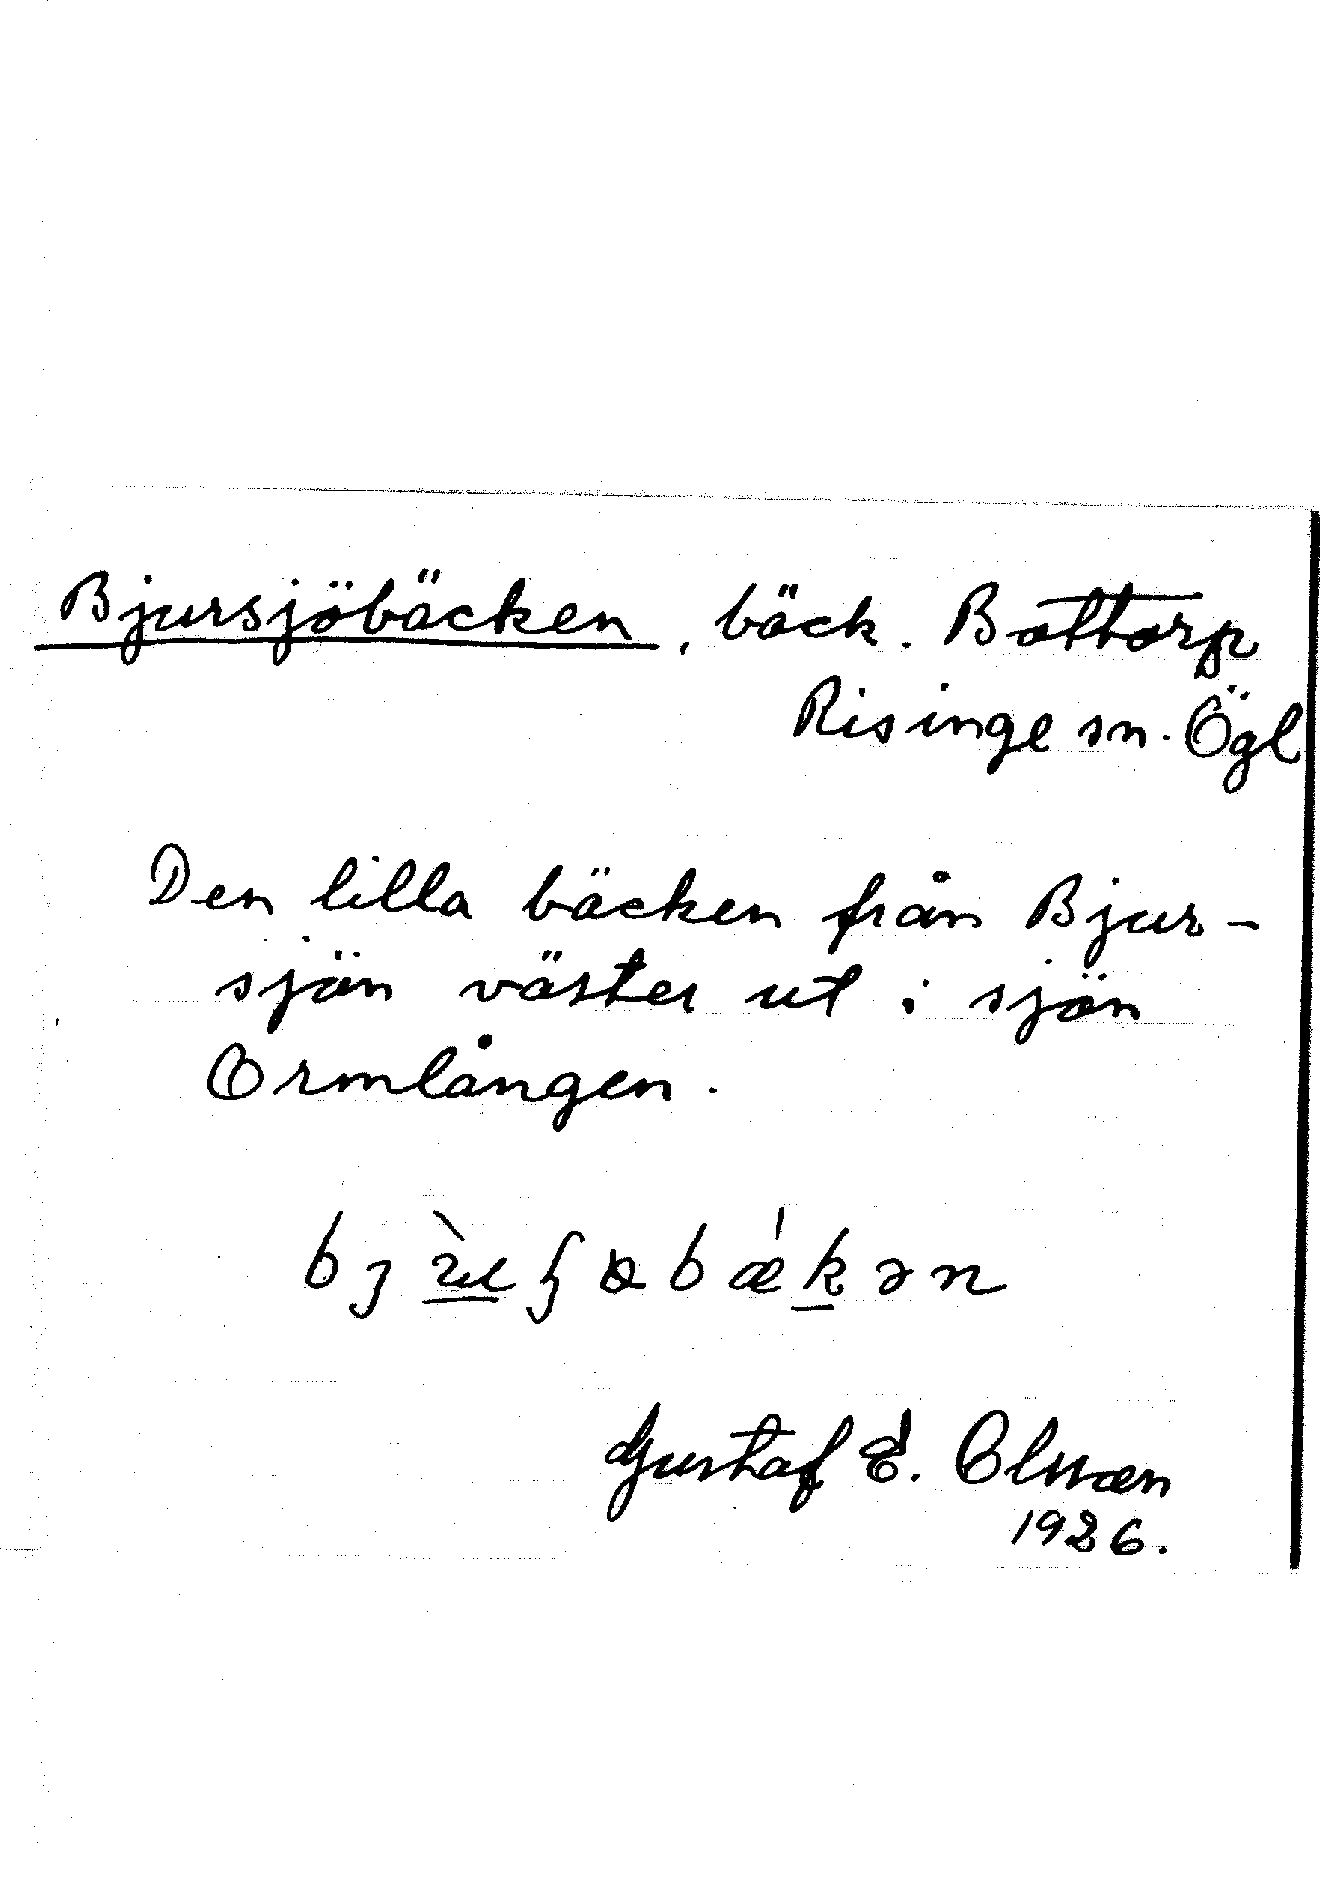 Bjursjöbäcken, bäck. Bottorp
Risinge sn. Ögl
Den lilla bäcken från Bjur-
sjön väster ut i sjön
Ormlången.
Gustaf E. Olsson
1926.